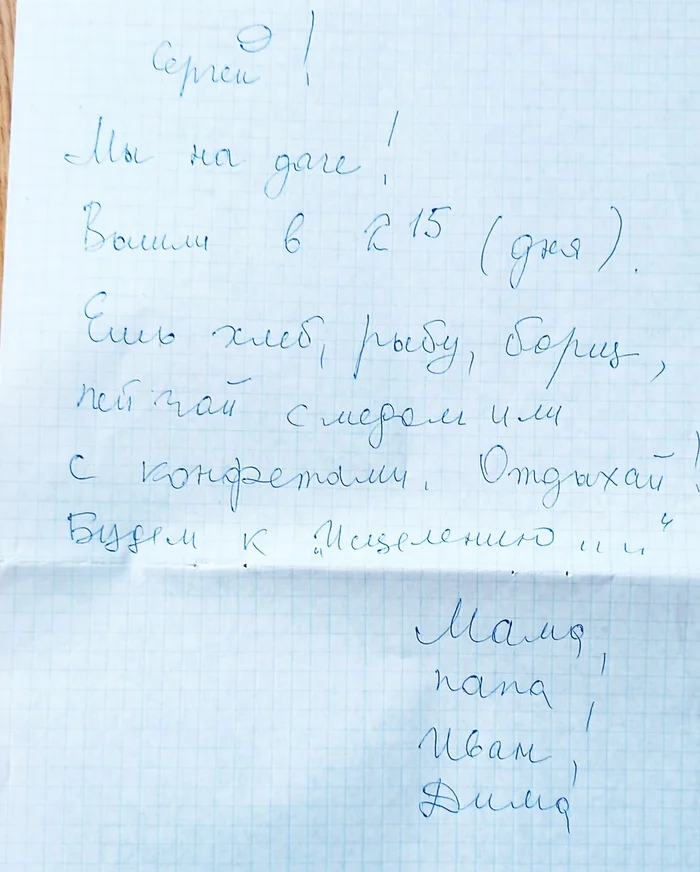 Сергей!
Мы на даче!
Вышли в 2 15 (дня).
Ешь хлеб, рыбу, борщ,
пей чай с медом или
с конфетами. Отдыхай!
Будем к "Исцелению
Мама,
папа,
Иван,
Дима